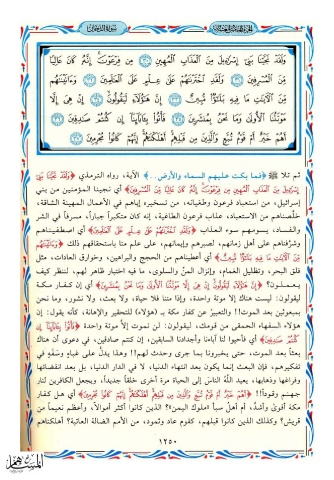 سورة الدخان
وَلَقَدْ نَجَّيْنَا بَنِي إِسْرَائِيلَ مِنَ الْعَذَابِ الْمُهِينِ ﴿٣٠﴾ مِن فِرْعَوْنَ إِنَّهُ كَانَ عَالِيًا
مِّنَ الْمُسْرِفِينَ ﴿٣١﴾ وَلَقَدِ اخْتَرْنَاهُمْ عَلَىٰ عِلْمٍ عَلَى الْعَالَمِينَ ﴿٣٢﴾ وَآتَيْنَاهُم
مِّنَ الْآيَاتِ مَا فِيهِ بَلَاءٌ مُّبِينٌ ﴿٣٣﴾ إِنَّ هَٰؤُلَاءِ لَيَقُولُونَ ﴿٣٤﴾ إِنْ هِيَ إِلَّا
مَوْتَتُنَا الْأُولَىٰ وَمَا نَحْنُ بِمُنشَرِينَ ﴿٣٥﴾ فَأْتُوا بِآبَائِنَا إِن كُنتُمْ صَادِقِينَ ﴿٣٦﴾
أَهُمْ خَيْرٌ أَمْ قَوْمُ تُبَّعٍ وَالَّذِينَ مِن قَبْلِهِمْ أَهْلَكْنَاهُمْ إِنَّهُمْ كَانُوا مُجْرِمِينَ ﴿٣٧﴾
ثم تلا ﷺ ﴿فما بكت عليهم السماء والأرض..﴾ الآية، رواه الترمذي ﴿وَلَقَدْ نَجَّيْنَا بَنِي
إِسْرَائِيلَ مِنَ الْعَذَابِ الْمُهِينِ مِن فِرْعَوْنَ إِنَّهُ كَانَ عَالِيًا مِّنَ الْمُسْرِفِينَ﴾ أي نجينا المؤمنين من بني
إسرائيل، من استعباد فرعون وطغيانه، من تسخيره إياهم في الأعمال المهينة الشاقة،
خلَّصناهم من الاستعباد، عذاب فرعون الطاغية، إنه كان متكبراً جباراً، مسرفاً في الشر
والفساد، يسومهم سوء العذاب ﴿وَلَقَدِ اخْتَرْنَاهُمْ عَلَىٰ عِلْمٍ عَلَى الْعَالَمِينَ﴾ أي اصطفيناهم
وشرَّفناهم على أهل زمانهم، لصبرهم وإيمانهم، على علم منا باستحقاقهم ذلك ﴿وَآتَيْنَاهُم
مِّنَ الْآيَاتِ مَا فِيهِ بَلَاءٌ مُّبِينٌ﴾ أي أعطيناهم من الحجج والبراهين، وخوارق العادات، مثل
فلق البحر، وتظليل الغمام، وإنزال المنِّ والسلوى، ما فيه اختبار ظاهر لهم، لننظر كيف
يعملون؟ ﴿إِنَّ هَٰؤُلَاءِ لَيَقُولُونَ إِنْ هِيَ إِلَّا مَوْتَتُنَا الْأُولَىٰ وَمَا نَحْنُ بِمُنشَرِينَ﴾ أي إن كفار مكة
ليقولون: ليست هناك إلا موتة واحدة، وإذا متنا فلا حياة، ولا بعث، ولا نشور، وما نحن
بمبعوثين بعد الموت!! والتعبير عن كفار مكة بـ (هؤلاء) للتحقير والإهانة، كأنه يقول: إن
هؤلاء السفهاء الحمقى من قومك، ليقولون: لن نموت إلاَّ موتة واحدة ﴿فَأْتُوا بِآبَائِنَا إِن
كُنتُمْ صَادِقِينَ﴾ أي فأحيوا لنا آباءنا وأجدادنا السابقين، إن كنتم صادقين، في دعوى أن هناك
بعثاً بعد الموت، حتى يخبرونا بما جرى وحدث لهم!! وهذا يدلُّ على غباءٍ وسَفَهٍ في
تفكيرهم، فإن البعث إنما يكون بعد انتهاء الدنيا، لا في الدار الدنيا، بل بعد انقضائها
وفراغها وذهابها، يعيد اللَّهُ الناسَ إلى الحياة مرة أخرى خلقاً جديداً، ويجعل الكافرين لنار
جهنم وقوداً!! ﴿أَهُمْ خَيْرٌ أَمْ قَوْمُ تُبَّعٍ وَالَّذِينَ مِن قَبْلِهِمْ أَهْلَكْنَاهُمْ إِنَّهُمْ كَانُوا مُجْرِمِينَ﴾ أي هل كفار
مكة أقوى وأشدُّ، أم أهلُ سبأ «ملوك اليمن»؟ الذين كانوا أكثر أموالاً، وأعظم نعيماً من
قريش؟ وكذلك الذين كانوا قبلهم، كقوم عاد وثمود، من الأمم الضالة العاتية؟ أهلكناهم
١٢٥٠